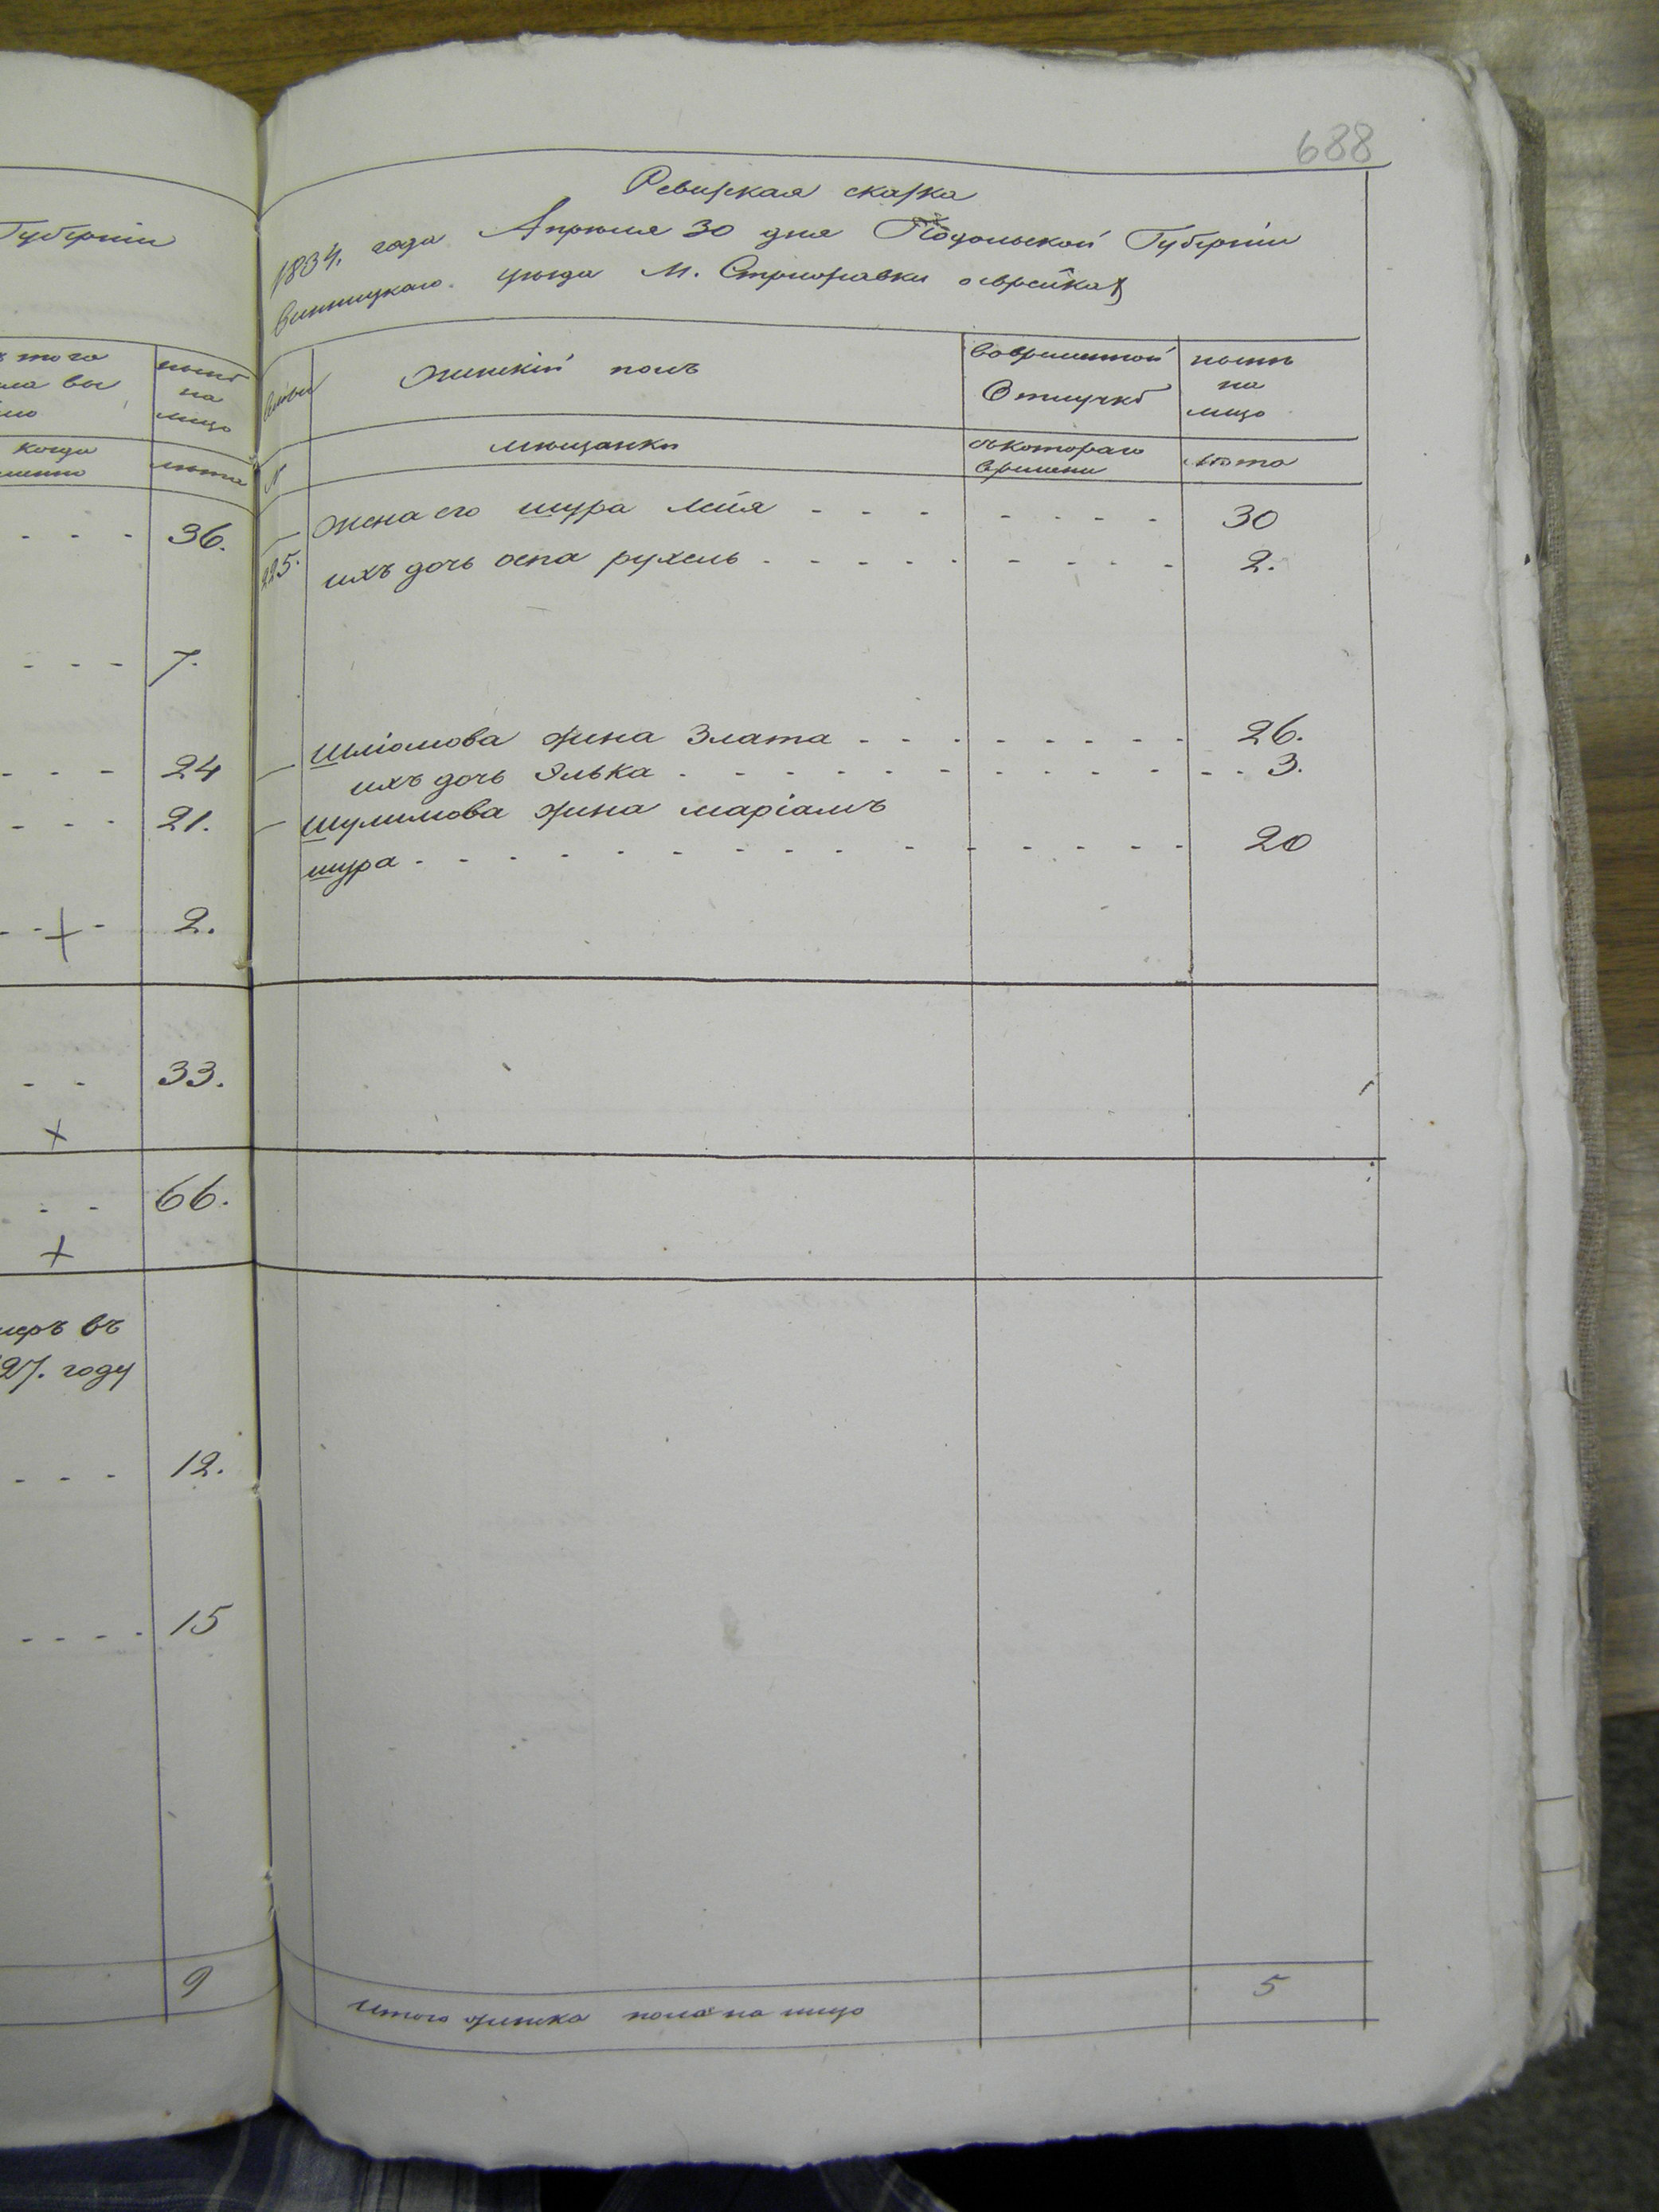 Губерніи
ъ того
ла вы
ло
нынѣ
на
лицо
когда
лѣта
36.
7.
24
21.
2.
33.
66.
меръ въ
27. году
12.
15
9
688
Ревизская сказка
1834. года Апреля 30 дня Подольской Губерніи
Винницкаго уѣзда М. Стрижавки о еврейках
Женскій полъ
Вовременной
Отлучкѣ
нынѣ
на
лицо
№
мещанки
съкотораго
времени
Лѣта
Жена его шура лея - - - - - - - 30
225. ихъ дочь оспа рухель - - - - - - - - 2.
Шліомова жина Злата - - - - - - - - - 26.
ихъ дочь Элька - - - - - - - - - - - - 3.
Шулимова жина маріамъ
шура - - - - - - - - - - - - - - 20
Итого женска пола на лицо 5